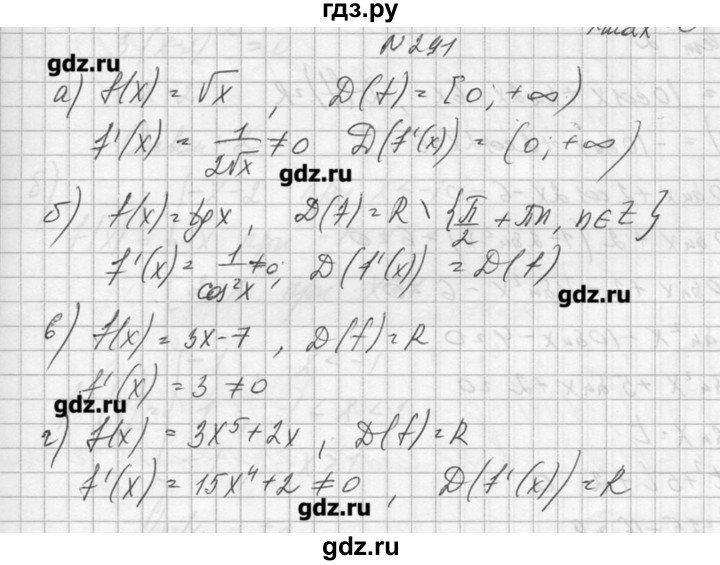 гдз.ру
N 291
gdz.ru
а) f(x) = √x , D(f) = [0; +∞)
f'(x) = 1/(2√x) ≠ 0 D(f'(x)) = (0; +∞)
gdz.ru
б) f(x) = tg x, D(f) = R \ {π/2 + πn, n∈Z}
f'(x) = 1/cos²x ≠ 0; D(f'(x)) = D(f)
gdz.ru
в) f(x) = 3x - 7 , D(f) = R
f'(x) = 3 ≠ 0
gdz.ru
г) f(x) = 3x⁵ + 2x , D(f) = R
f'(x) = 15x⁴ + 2 ≠ 0 , D(f'(x)) = R
gdz.ru
gdz.ru